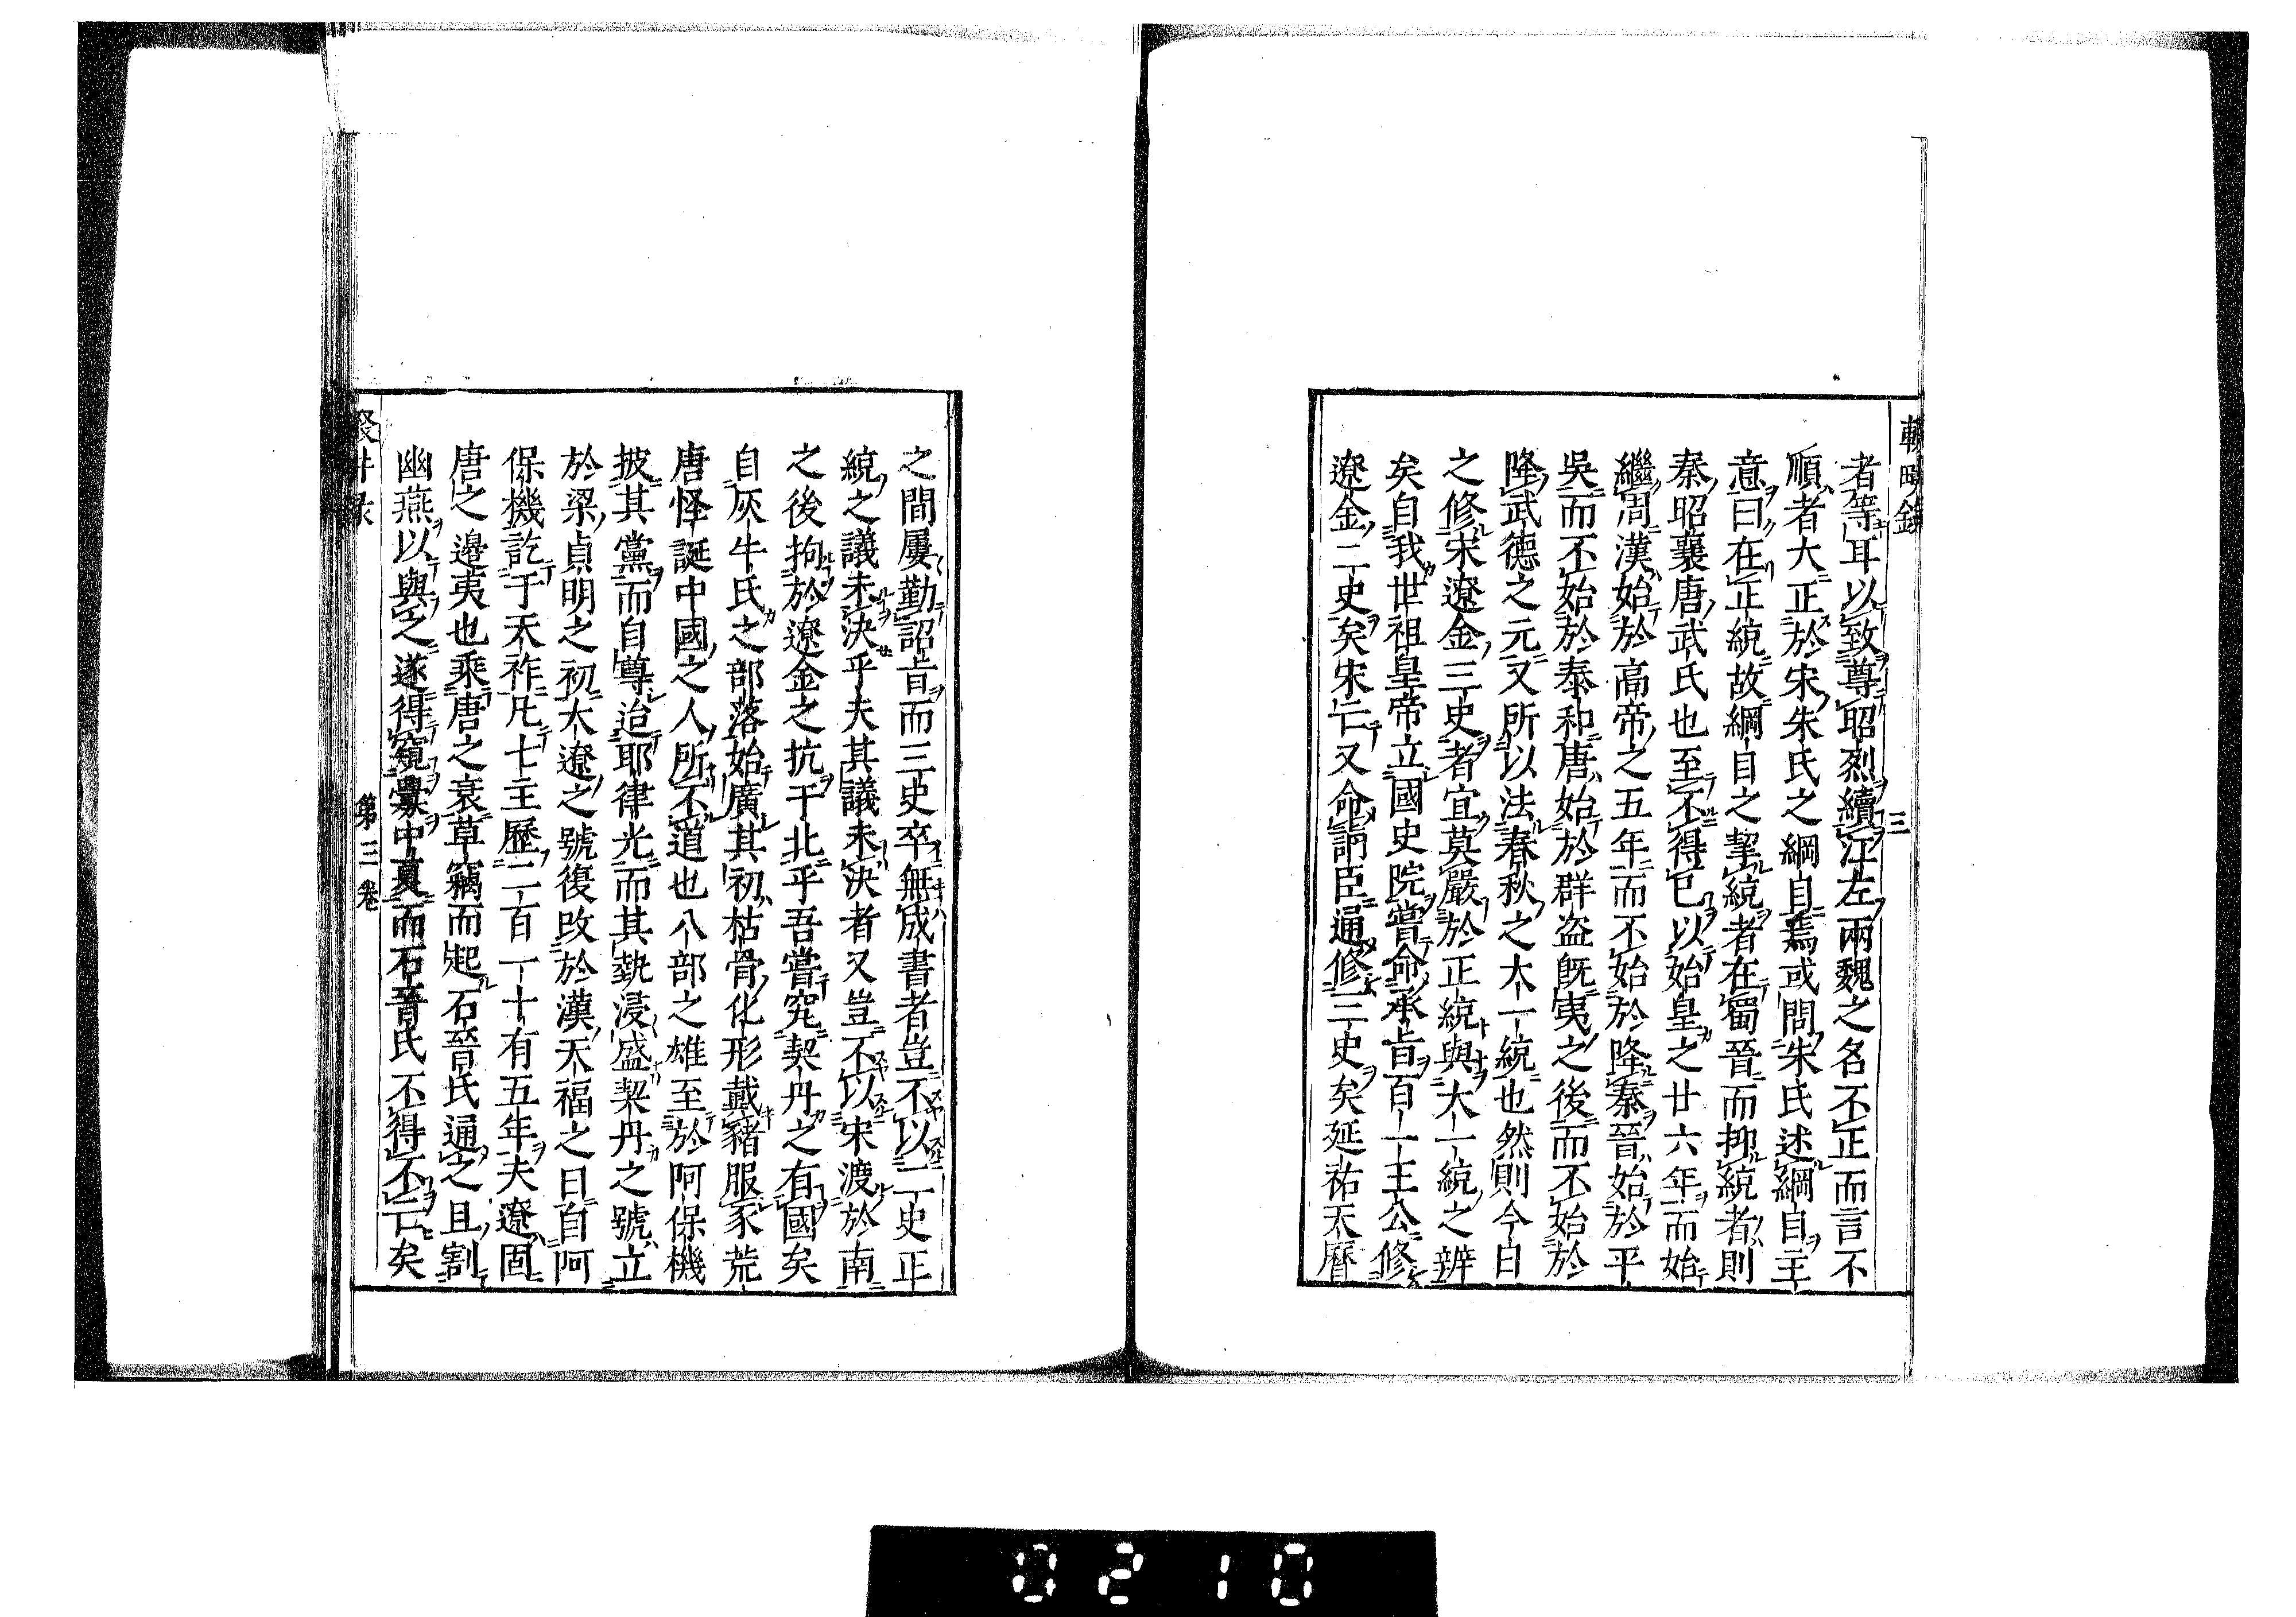 三
者等耳以致尊昭烈續江左兩魏之名不正而言不
順者大正於宋朱氏之綱目焉或問朱氏述綱目主
意曰在正統故綱目之挈統者在蜀晉而抑統者則
秦昭襄唐武氏也至不得已以始皇之廿六年而始
繼周漢始於高帝之五年而不始於降秦晉始於平
吳而不始於泰和唐始於群盜既夷之後而不始於
隆武德之元又所以法春秋之大一統也然則今日
之修宋遼金三史者宜莫嚴於正統與大一統之辨
矣自我世祖皇帝立國史院嘗命承旨百一王公修
遼金二史矣宋亡又命詞臣通修三史矣延祐天曆
之間屢勤詔旨而三史卒無成書者豈不以二史正
統之議未決乎夫其議未決者又豈不以宋渡於南
之後拘於遼金之抗于北乎吾嘗究契丹之有國矣
自灰牛氏之部落始廣其初枯骨化形戴豬服豕荒
唐怪誕中國之人所不道也八部之雄至於阿保機
披其黨而自尊迨耶律光而其埶浸盛契丹之號立
於梁貞明之初大遼之號復改於漢天福之日自阿
保機訖于天祚凡七主歷二百一十有五年夫遼固
唐之邊夷也乘唐之衰草竊而起石晉氏通之且割
幽燕以與之遂得窺釁中夏而石晉氏不得不亡矣
第三卷
0210